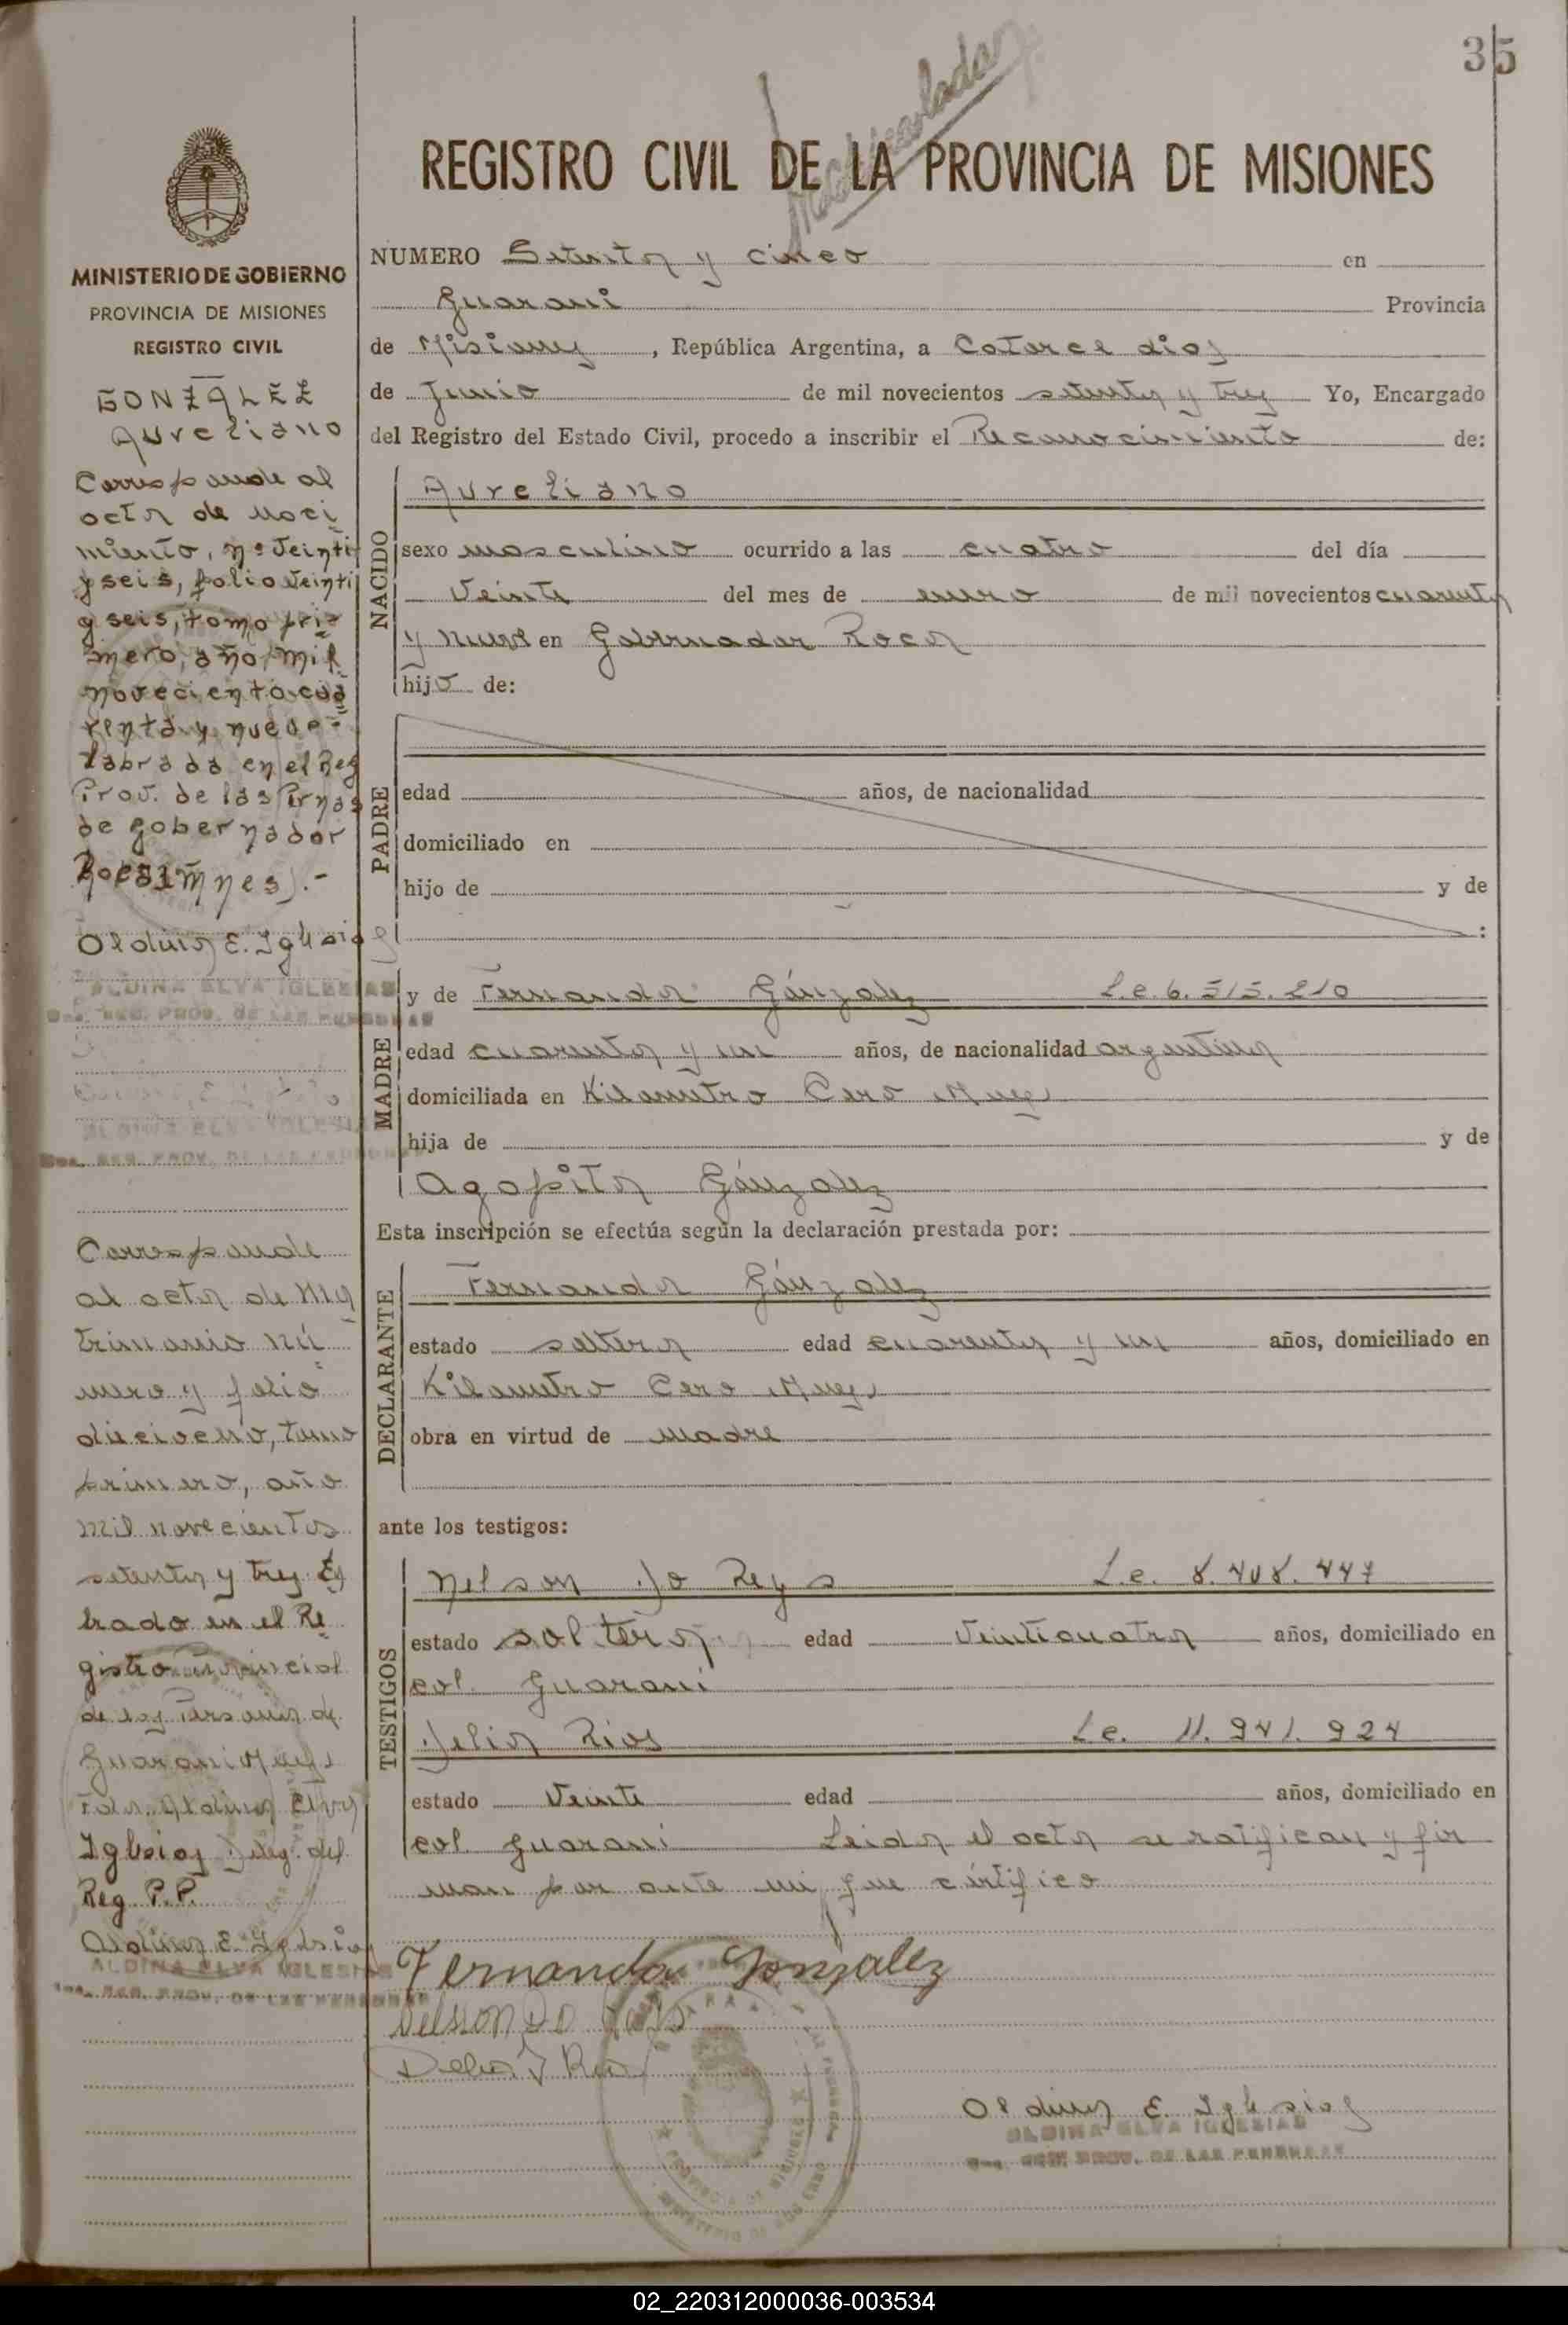 35
Matriculada
REGISTRO CIVIL DE LA PROVINCIA DE MISIONES
MINISTERIO DE GOBIERNO
PROVINCIA DE MISIONES
REGISTRO CIVIL
GONZALEZ
Aureliano
Corresponde al
acta de naci
miento, nº Veinti
y seis, folio Veinti
y seis, tomo pri=
mero, año mil
noveciento cua
renta y nueve=
labrada en el Reg
Prov. de las Prnas
de Gobernador
Roca Mnes).-
Aldina E. Iglesias
ALDINA ELVA IGLESIAS
REG. PROV. DE LAS PERSONAS
ALDINA ELVA IGLESIAS
REG. PROV. DE LAS PERSONAS
Corresponde
al acta de Ma
trimonio nú
mero y folio
dieciocho, tomo
primero, año
mil novecientos
setenta y tres
brado en el Re
gistro Provincial
de las Personas de
Guarani
Fdo. Aldina Elva
Iglesias Deleg. del
Reg. P.P.
Aldina E. Iglesias
ALDINA ELVA IGLESIAS
REG. PROV. DE LAS PERSONAS
NUMERO Setenta y cinco en
Guarani Provincia
de Misiones, República Argentina, a Catorce dias
de Junio de mil novecientos setenta y tres Yo, Encargado
del Registro del Estado Civil, procedo a inscribir el Reconocimiento de:
NACIDO
Aureliano
sexo masculino ocurrido a las cuatro del día
Veinte del mes de enero de mil novecientos cuarenta
y nueve en Gobernador Roca
hijo de:
PADRE
edad años, de nacionalidad
domiciliado en
hijo de y de
:
MADRE
y de Fernanda Gónzalez L.e. 6. 515. 210
edad cuarenta y un años, de nacionalidad argentina
domiciliada en Kilometro Cero
hija de y de
Agapita Gónzalez
Esta inscripción se efectúa según la declaración prestada por:
DECLARANTE
Fernanda Gónzalez
estado soltera edad cuarenta y un años, domiciliado en
Kilometro Cero
obra en virtud de madre
ante los testigos:
TESTIGOS
Nelson Do Reys L.e. 8. 408. 447
estado soltero edad Veinticuatro años, domiciliado en
col. Guarani
Delia Rios L.e. 11. 941. 924
estado Veinte edad años, domiciliado en
col. Guarani Leida el acta se ratifican y fir
man por ante mi que cértifico
Fernanda Gonzalez
Aldina E. Iglesias
ALDINA ELVA IGLESIAS
REG. PROV. DE LAS PERSONAS
02_220312000036-003534